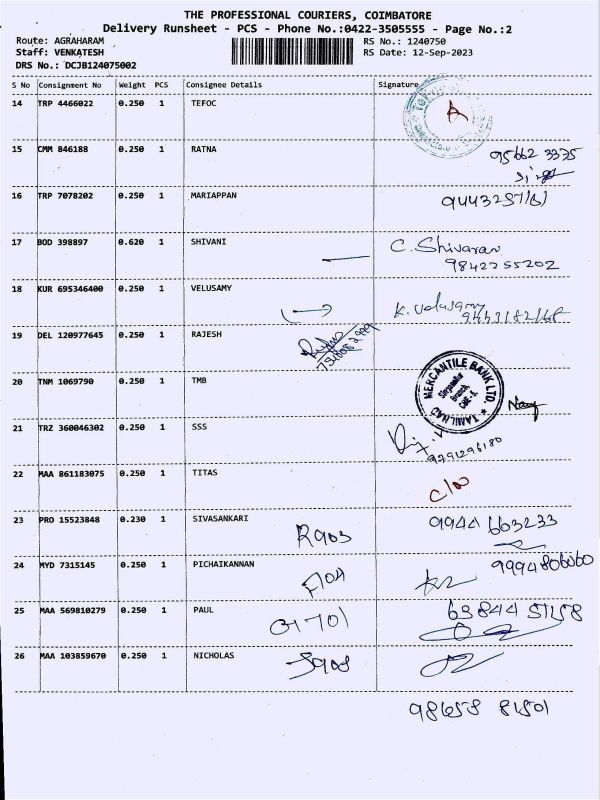 THE PROFESSIONAL COURIERS, COIMBATORE
Delivery Runsheet - PCS - Phone No.:0422-3505555 - Page No.:2
Route: AGRAHARAM RS No.: 1240750
Staff: VENKATESH RS Date: 12-Sep-2023
DRS No.: DCJB124075002
S No Consignment No Weight PCS Consignee Details Signature
14 TRP 4466022 0.250 1 TEFOC
15 CMM 846188 0.250 1 RATNA
95662 3335
16 TRP 7078202 0.250 1 MARIAPPAN
17 BOD 398897 0.620 1 SHIVANI C. Shivaran
9842255202
18 KUR 695346400 0.250 1 VELUSAMY K. Velusamy
19 DEL 120977645 0.250 1 RAJESH
20 TNM 1069790 0.250 1 TMB
TAMILNAD MERCANTILE BANK LTD.
Branch,
21 TRZ 360046302 0.250 1 SSS
9791296180
22 MAA 861183075 0.250 1 TITAS
23 PRO 15523848 0.230 1 SIVASANKARI 9944 663233
R903
24 MYD 7315145 0.250 1 PICHAIKANNAN 9994806060
F104
25 MAA 569810279 0.250 1 PAUL 63844 51158
G1701
26 MAA 103859670 0.250 1 NICHOLAS
J903
98658 81501